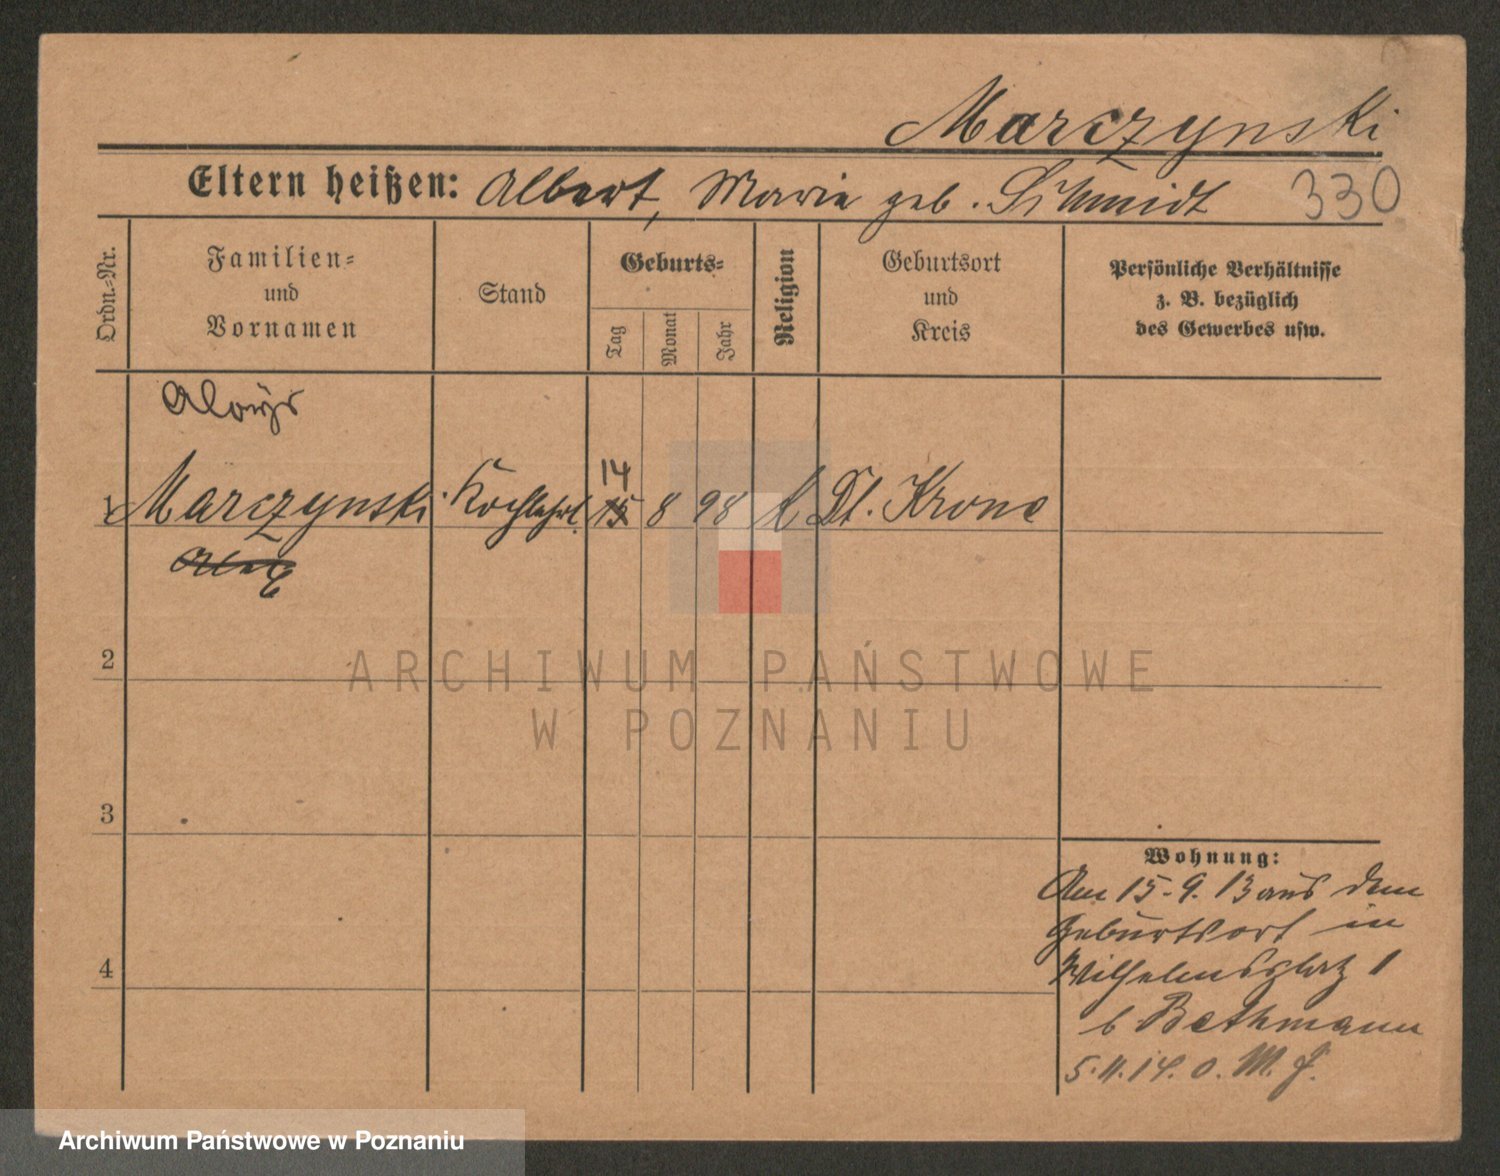 Marczynski
Eltern heißen: Albert, Marie geb. Schmidt 330
Ordn.=Nr.
Familien=
und
Vornamen
Stand
Geburts=
Tag
Monat
Jahr
Religion
Geburtsort
und
Kreis
Persönliche Verhältnisse
z. B. bezüglich
des Gewerbes usw.
Aloÿs
14
1 Marczynski Kochlehrl. 15 8 98 k Dt. Krone
Alex
2
ARCHIWUM PAŃSTWOWE
W POZNANIU
3
Wohnung:
Am 15.9.13 aus dem
Geburtsort in
Wilhelmsplatz 1
b Bethmann
4
5.11.14. o. M. J.
Archiwum Państwowe w Poznaniu